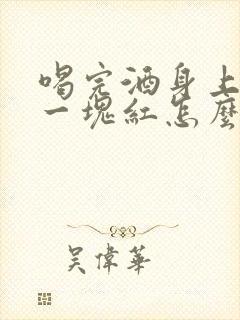 喝完酒身上
一塊紅怎麼
吴偉華